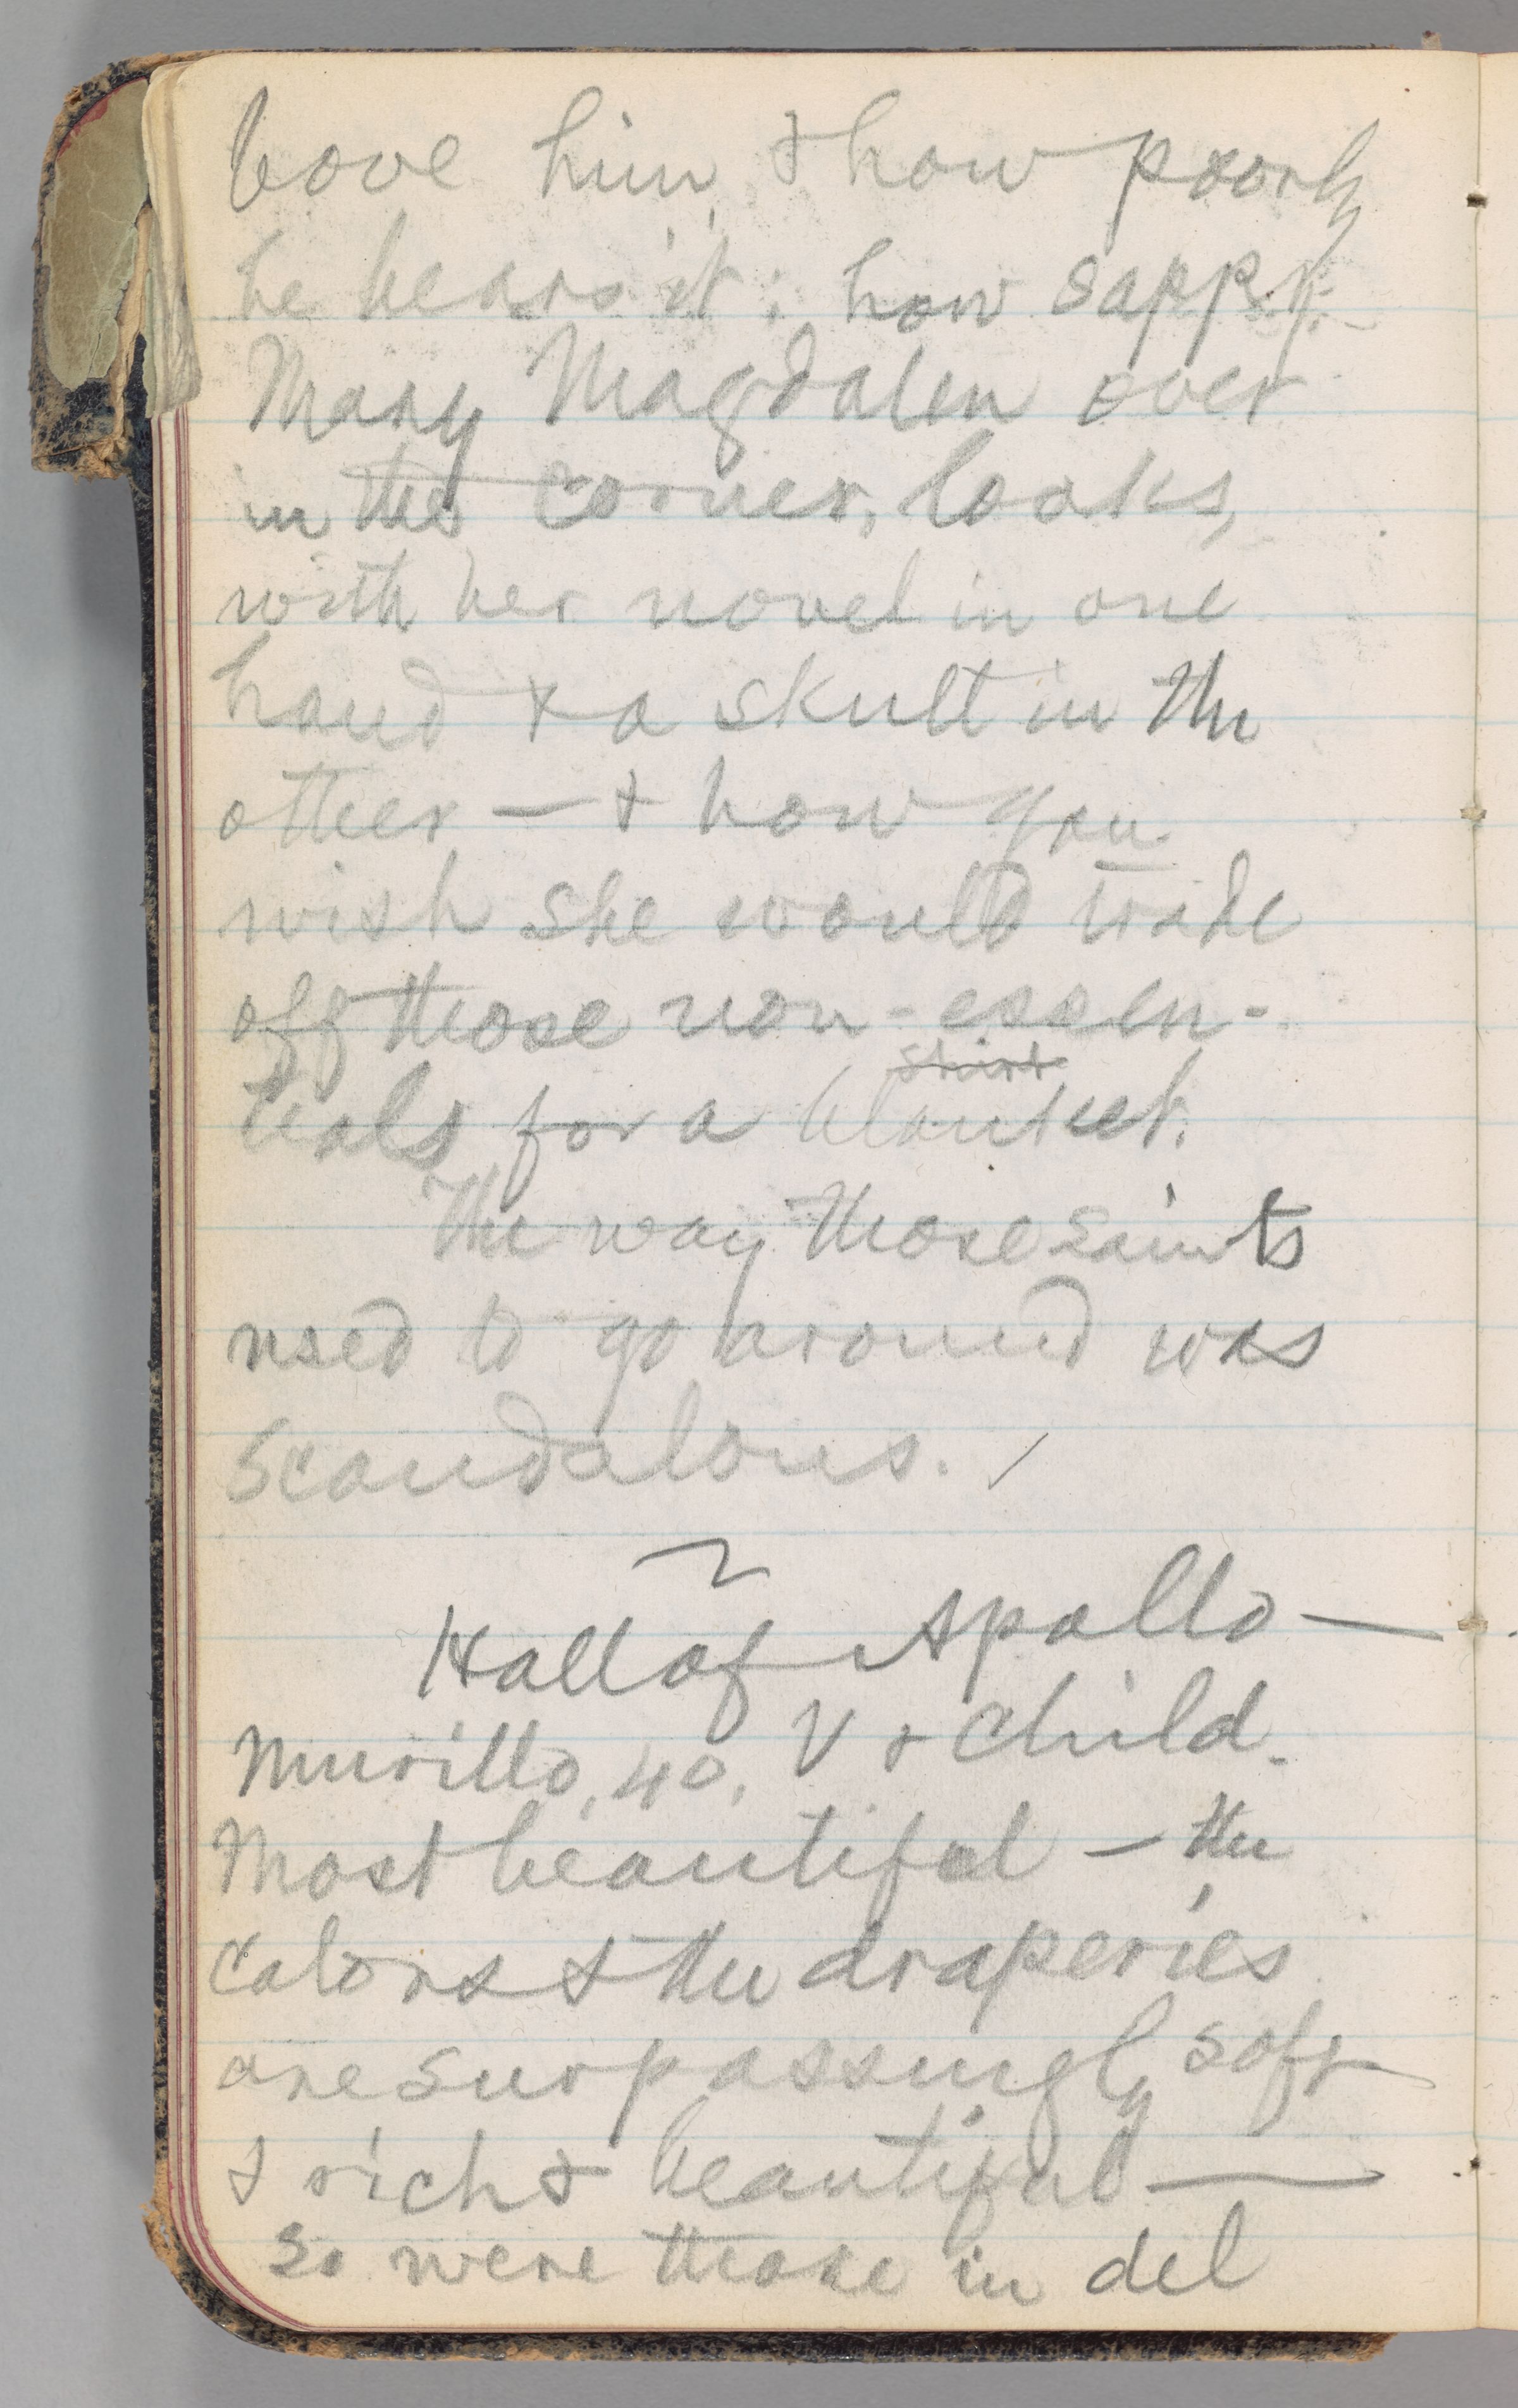 bove him, & how poorly
he bears it; how sappy
Mary Magdalen over
in the corner, looks,
with her novel in one
hand & a skull in the
other — & how you
wish she would trade
off those non-essen-
shirt
tials for a blanket.
The way those saints
used to go around was
scandalous. /
Hall of Apollo —
Murillo, 40, V & Child.
Most beautiful — the
colors & the draperies
are surpassingly soft
& rich & beautiful —
So were those in del